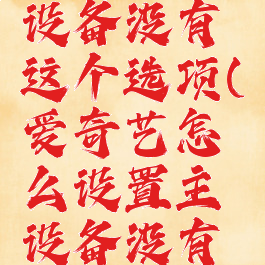 设备没有
这个选项(
爱奇艺怎
么设置主
设备没有